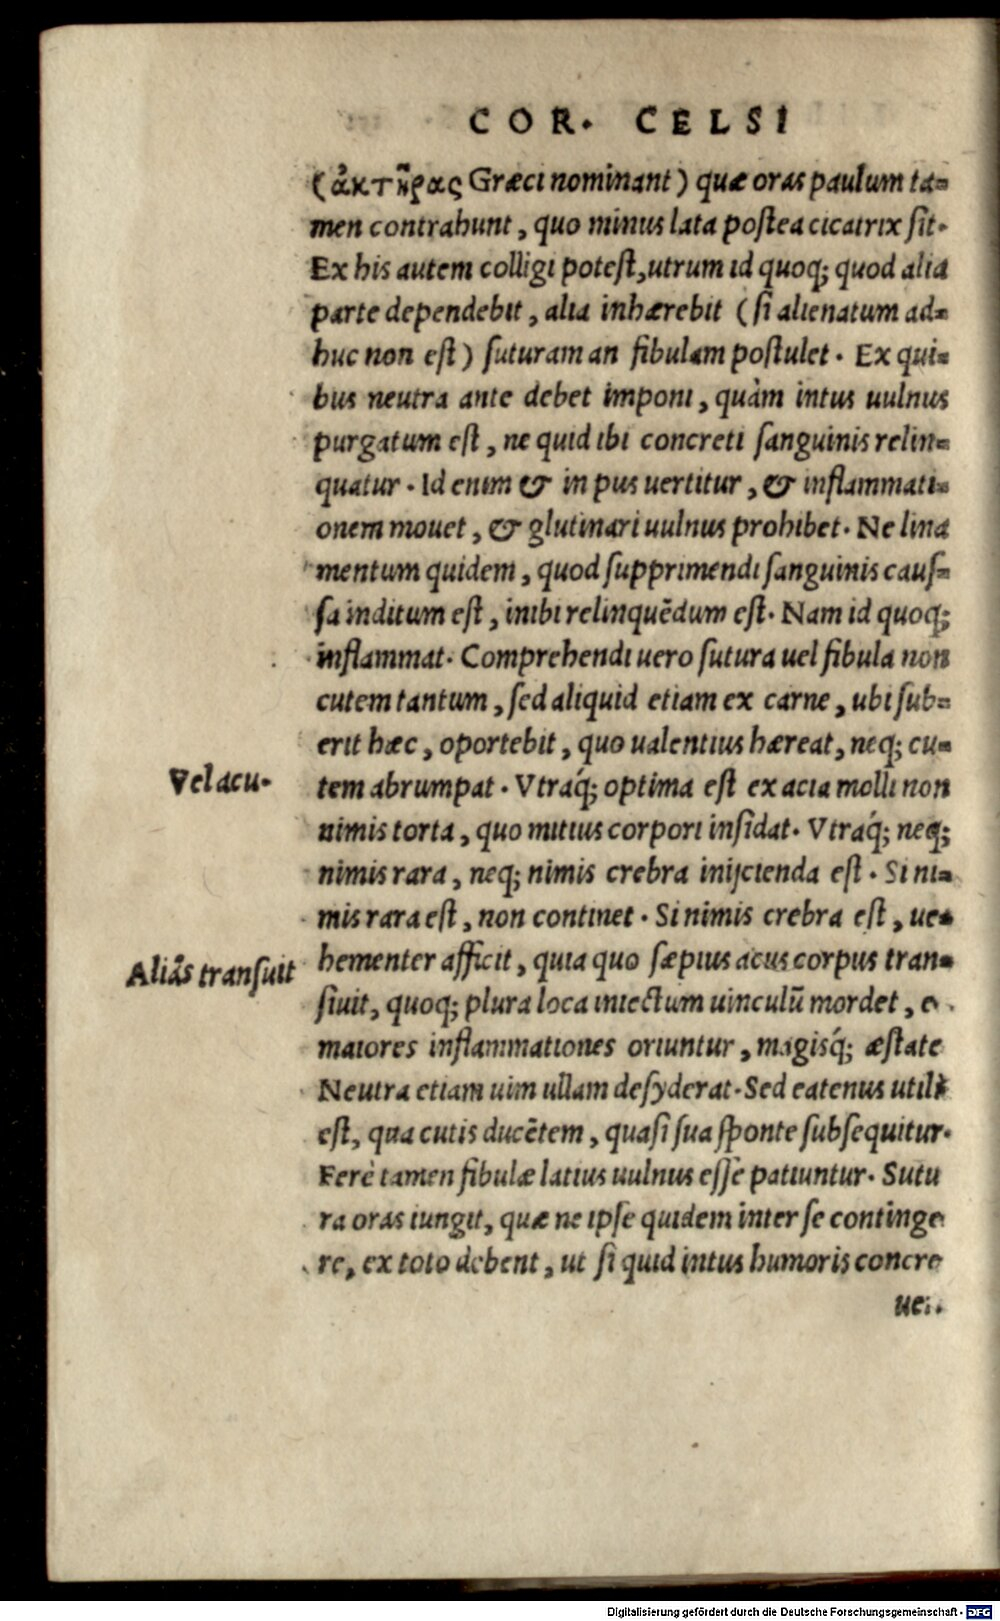 COR. CELSI
(ἀκτῆρας Græci nominant) quæ oras paulum ta=
men contrahunt, quo minus lata postea cicatrix sit.
Ex his autem colligi potest, utrum id quoq; quod alia
parte dependebit, alia inhærebit (si alienatum ad=
huc non est) suturam an fibulam postulet. Ex qui=
bus neutra ante debet imponi, quàm intus uulnus
purgatum est, ne quid ibi concreti sanguinis relin=
quatur. Id enim & in pus uertitur, & inflammati=
onem mouet, & glutinari uulnus prohibet. Ne lina
mentum quidem, quod supprimendi sanguinis caus=
sa inditum est, inibi relinquēdum est. Nam id quoq;
inflammat. Comprehendi uero sutura uel fibula non
cutem tantum, sed aliquid etiam ex carne, ubi sub=
erit hæc, oportebit, quo ualentius hæreat, neq; cu=
Vel acu.
tem abrumpat. Vtraq́; optima est ex acia molli non
nimis torta, quo mitius corpori insidat. Vtraq́; neq;
nimis rara, neq; nimis crebra inijcienda est. Si ni=
mis rara est, non continet. Si nimis crebra est, ue=
Aliâs transuit
hementer afficit, quia quo sæpius acus corpus tran=
siuit, quoq; plura loca iniectum uinculū mordet, eo
maiores inflammationes oriuntur, magisq́; æstate
Neutra etiam uim ullam desyderat. Sed eatenus utilis
est, qua cutis ducētem, quasi sua sponte subsequitur.
Ferè tamen fibulæ latius uulnus esse patiuntur. Sutu
ra oras iungit, quæ ne ipse quidem inter se continge
re, ex toto debent, ut si quid intus humoris concre
ue..
Digitalisierung gefördert durch die Deutsche Forschungsgemeinschaft - DFG